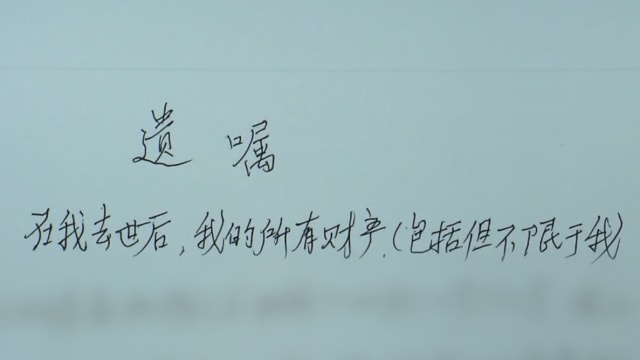 遗嘱
在我去世后,我的所有财产.(包括但不限于我